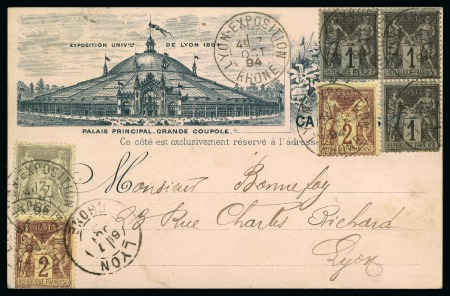 EXPOSITION UNIVlle DE LYON 1894
LYON-EXPOSITION
OCT
94
RHONE
1
1
1
2
PALAIS PRINCIPAL. GRANDE COUPOLE.
CA
Ce côté est exclusivement réservé à l'adresse
Monsieur Bonnefoy
13 Rue Charles Richard
Lyon
LYON
RHONE
POSTES
2